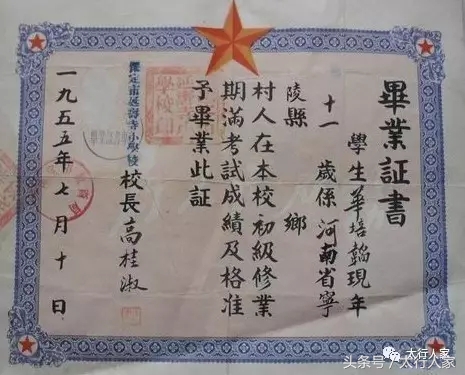 畢業証書
學生華培韜現年
十一歲係河南省寧
陵縣 鄉
村人在本校初級修業
期滿考試成績及格准
予畢業此証
保定市延壽寺小學校
校長高桂淑
一九五五年七月十日
头条号/太行人家
太行人家